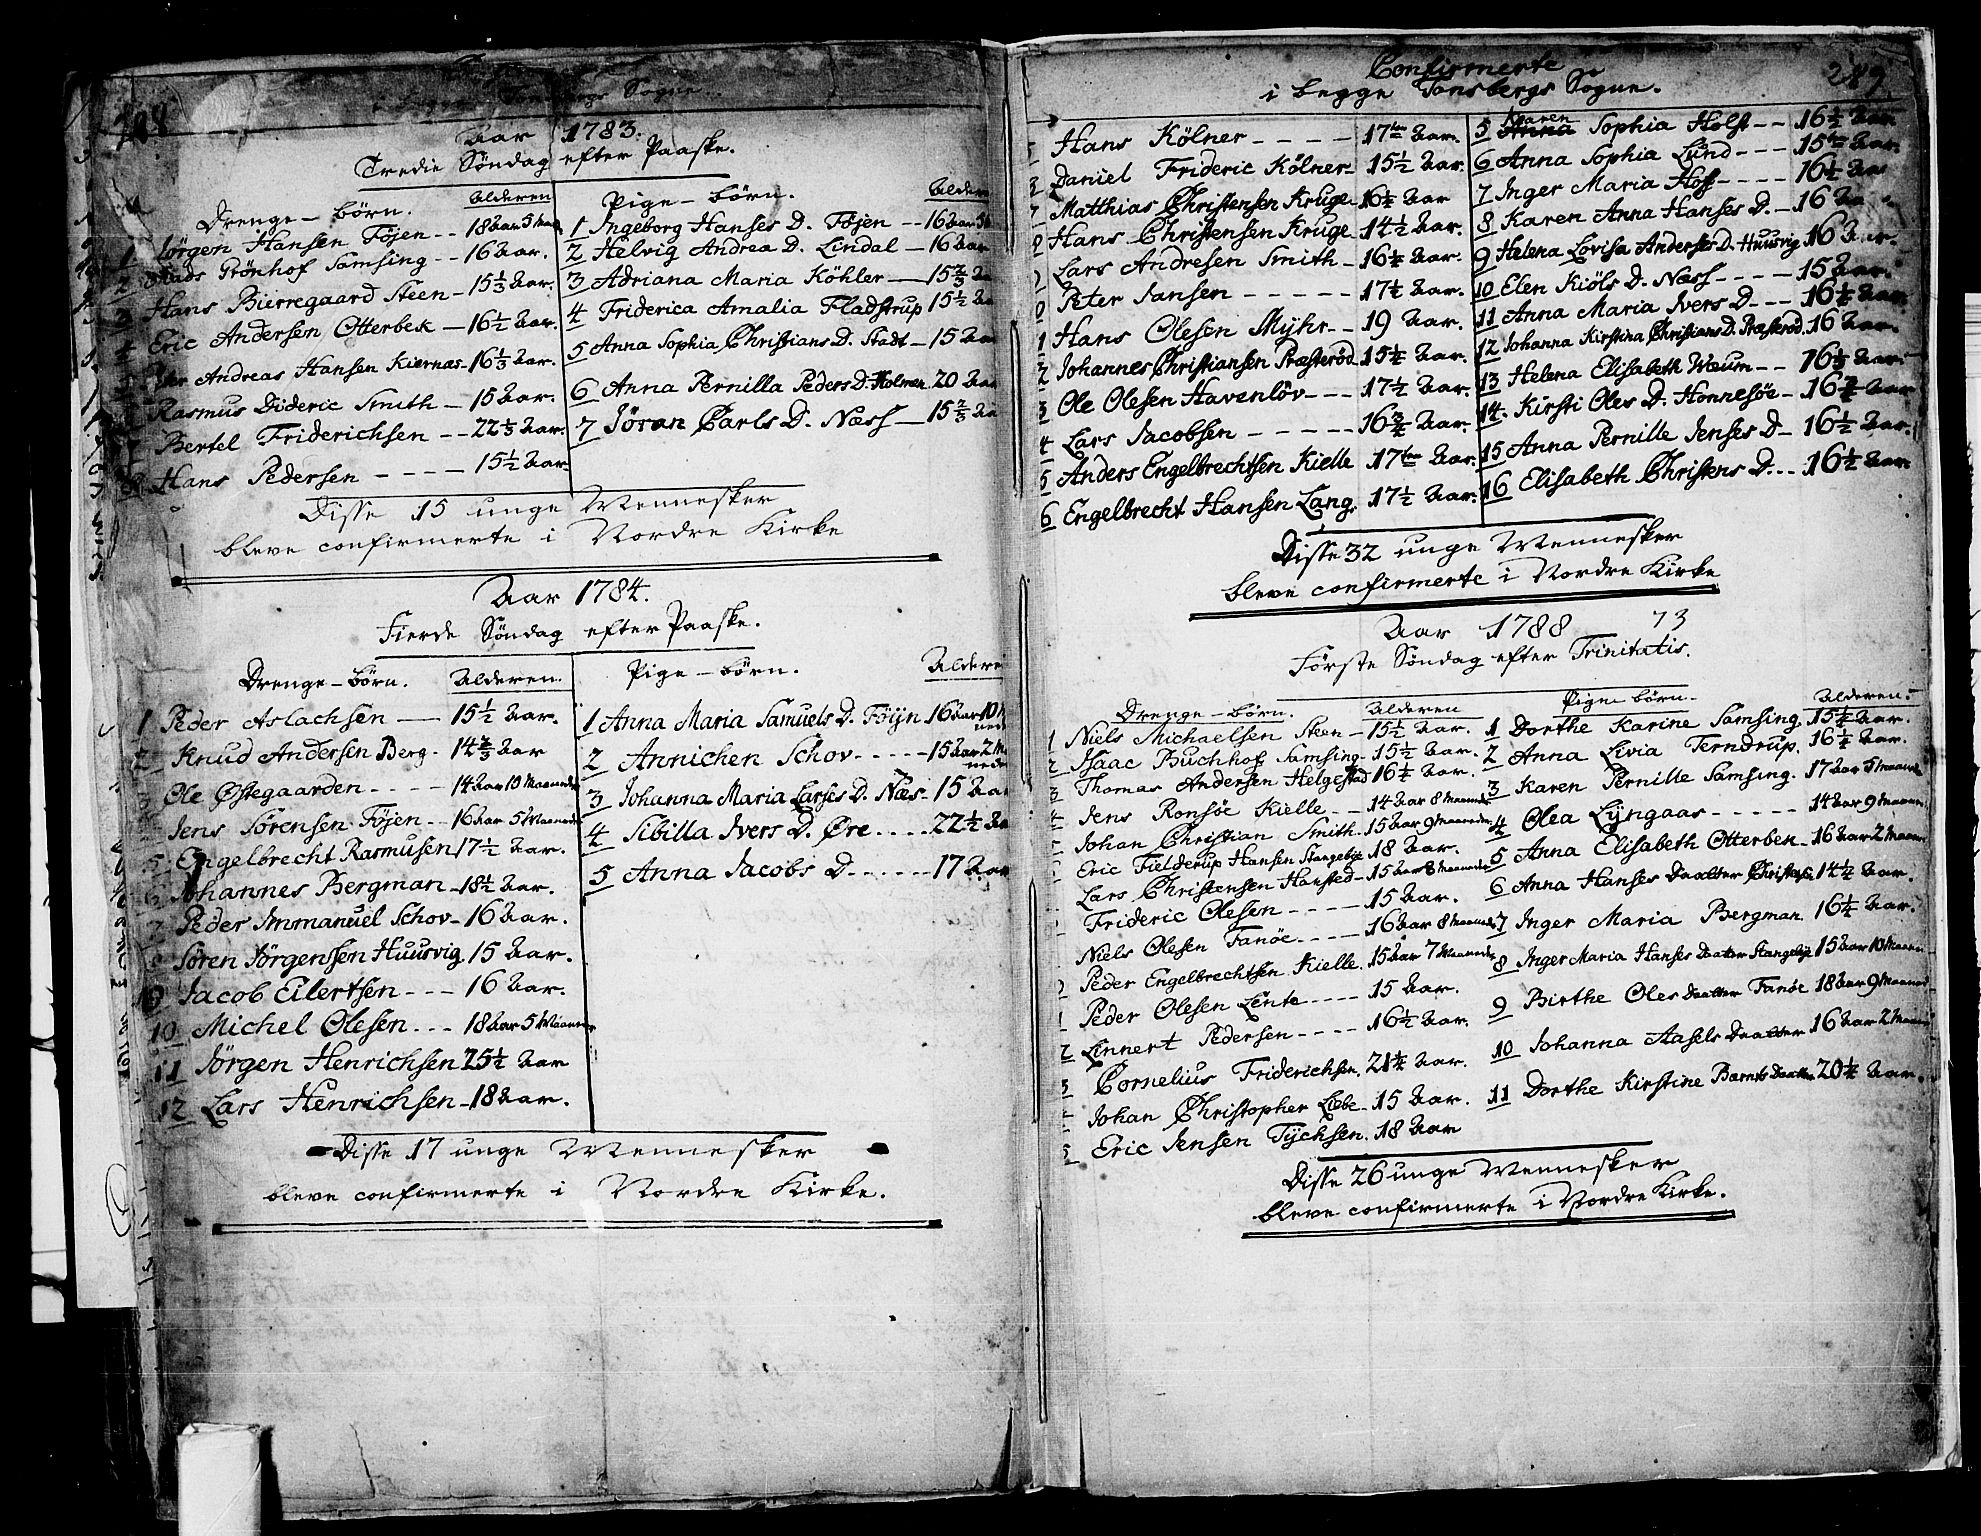 288
i begge Tonsbergs Sogne.
Aar 1783.
Tredie Søndag efter Paaske.
Drenge-børn. Alderen
1 Jørgen Hansen Föjen -- 18 Aar 5 Maan
2 Mads Grönhof Samsing -- 16 Aar.
3 Hans Bierregaard Steen - 15 1/3 Aar.
4 Eric Andersen Otterbek - 16 1/2 Aar.
Andreas Hansen Kiernas - 16 1/3 Aar.
Rasmus Dideric Smith - 15 Aar.
7 Bertel Friderichsen -- 22 1/3 Aar.
8 Hans Pedersen ---- 15 1/2 Aar
Pige-børn. Alderen
1 Ingeborg Hanses D. Föjen -- 16 Aar 5
2 Helvig Andrea D. Lindal - 16 Aar
3 Adriana Maria Köhler - 15 2/3 Aa
4 Friderica Amalia Fladstrup 15 1/2 Aa
5 Anna Sophia Christians D. Stadt - 15 Aar
6 Anna Pernilla Peders D. Holmen 20 Aar
7 Jöran Carls D. Næss - 15 2/3 Aa
Disse 15 unge Mennesker
bleve confirmerte i Nordre Kirke
Aar 1784.
Fierde Søndag efter Paaske.
Drenge-børn. Alderen.
1 Peder Aslachsen - 15 1/2 Aar.
2 Knud Andersen Berg - 14 2/3 Aar
Ole Østegaarden ---- 14 Aar 10 Maaneder
Jens Sörensen Föjen -- 16 Aar 5 Maaneder
5 Engelbrecht Rasmusen 17 1/2 Aar.
6 Johannes Bergman - 18 1/2 Aar.
7 Peder Immanuel Schov - 16 Aar.
Sören Jörgenssen Huusvig 15 Aar.
9 Jacob Eilertsen --- 16 Aar.
10 Michel Olesen --- 18 Aar 5 Maaneder
11 Jörgen Henrichsen 25 1/2 Aar
12 Lars Henrichsen - 18 Aar.
Pige-børn. Alderen
1 Anna Maria Samuels D. Föijn 16 Aar 10 M
neder
2 Annichen Schov ---- 15 Aar 2 Ma
neder
3 Johanna Maria Larses D. Næs - 15 Aar
4 Sibilla Ivers D. Øre ---- 22 1/2 Aa
5 Anna Jacobs D. ----- 17 Aar
Disse 17 unge Mennesker
bleve confirmerte i Nordre Kirke.
Confirmerte 289
i begge Tonsbergs Sogne.
Hans Kölner ---- 17 Aar.
Daniel Frideric Kölner - 15 1/2 Aar.
Matthias Christensen Kruge - 16 1/2 Aar
8 Hans Christensen Kruge 14 1/2 Aar.
9 Lars Andresen Smith - 16 1/4 Aar.
0 Peter Jansen ----- 17 1/4 Aar.
1 Hans Olesen Myhr -- 19 Aar.
2 Johannes Christiansen Præsteröd 15 1/4 Aar.
3 Ole Olesen Havenlöv --- 17 1/2 Aar.
4 Lars Jacobsen ----- 16 3/4 Aar.
5 Anders Engelbrechtsen Kielle 17 Aar.
6 Engelbrecht Hansen Lang. 17 1/2 Aar.
5 Karen Sophia Holst -- 16 1/2 Aar
6 Anna Sophia Lund --- 15 Aar.
7 Inger Maria Hoff ---- 16 1/2 Aar
8 Karen Anna Hanses D. - 16 Aa
9 Helena Lovisa Anderses D. Huusvig 16 Aar.
10 Elen Kiöls D. Næss ---- 15 Aar.
11 Anna Maria Ivers D --- 16 1/2 Aar.
12 Johanna Kirstina Christians D. Præsteröd. 16 Aar.
13 Helena Elisabeth Meum -- 16 1/3 Aar.
14. Kirsti Oles D. Honnesöe - 16 3/4 Aar
15 Anna Pernille Jenses D - 16 1/2 Aar.
16 Elisabeth Christens D --- 16 1/2 Aar.
Disse 32 unge Mennesker
bleve confirmerte i Nordre Kirke
Aar 1788 73
Første Søndag efter Trinitatis.
Drenge-børn. Alderen
1 Niels Michaelsen Steen - 15 1/2 Aar.
2 Isaac Buchhof Samsing - 15 1/2 Aar.
3 Thomas Andersen Helgestad 16 1/2 Aar.
4 Jens Ronsöe Kielle -- 14 Aar 8 Maaneder
Johan Christian Smith. 15 Aar 9 Maaneder
Eric Fielderup Hansen Stangebije 18 Aar.
Lars Christensen Hansted - 15 Aar 8 Maaneder
Frideric Olesen ---- 15 Aar.
Niels Olesen Fanöe ---- 16 Aar 8 Maaneder
Peder Engelbrechtsen Kielle. 15 Aar 7 Maaneder
1 Peder Olesen Lente ---- 15 Aar.
2 Linnert Pedersen ---- 16 1/2 Aar.
3 Cornelius Friderichsen. 21 1/4 Aar.
Johan Christopher Liebe - 15 Aar.
5 Eric Jensen Tychsen. 18 Aar
Pigen børn. Alderen.
1 Dorthe Karine Samsing. 15 1/4 Aar.
2 Anna Livia Terndrup. 16 1/4 Aar.
3 Karen Pernille Samsing. 17 Aar 5 Maaneder
4 Olea Lyngaas ----- 14 Aar 9 Maaned
5 Anna Elisabeth Otterbek - 16 Aar 2 Maaned
6 Anna Hanses Daatter Christensen 14 1/2 Aar.
7 Inger Maria Bergman 16 1/4 Aar.
8 Inger Maria Hanses Daatter Stangebije 15 Aar 10 Maaned
9 Birthe Oles Daatter Fanöe 18 Aar 9 Maaned
10 Johanna Aasels Daatter 16 Aar 2 Maaned
11 Dorthe Kirstine Bernts Daatter 20 1/4 Aar.
Disse 26 unge Mennesker
bleve confirmerte i Nordre Kirke.